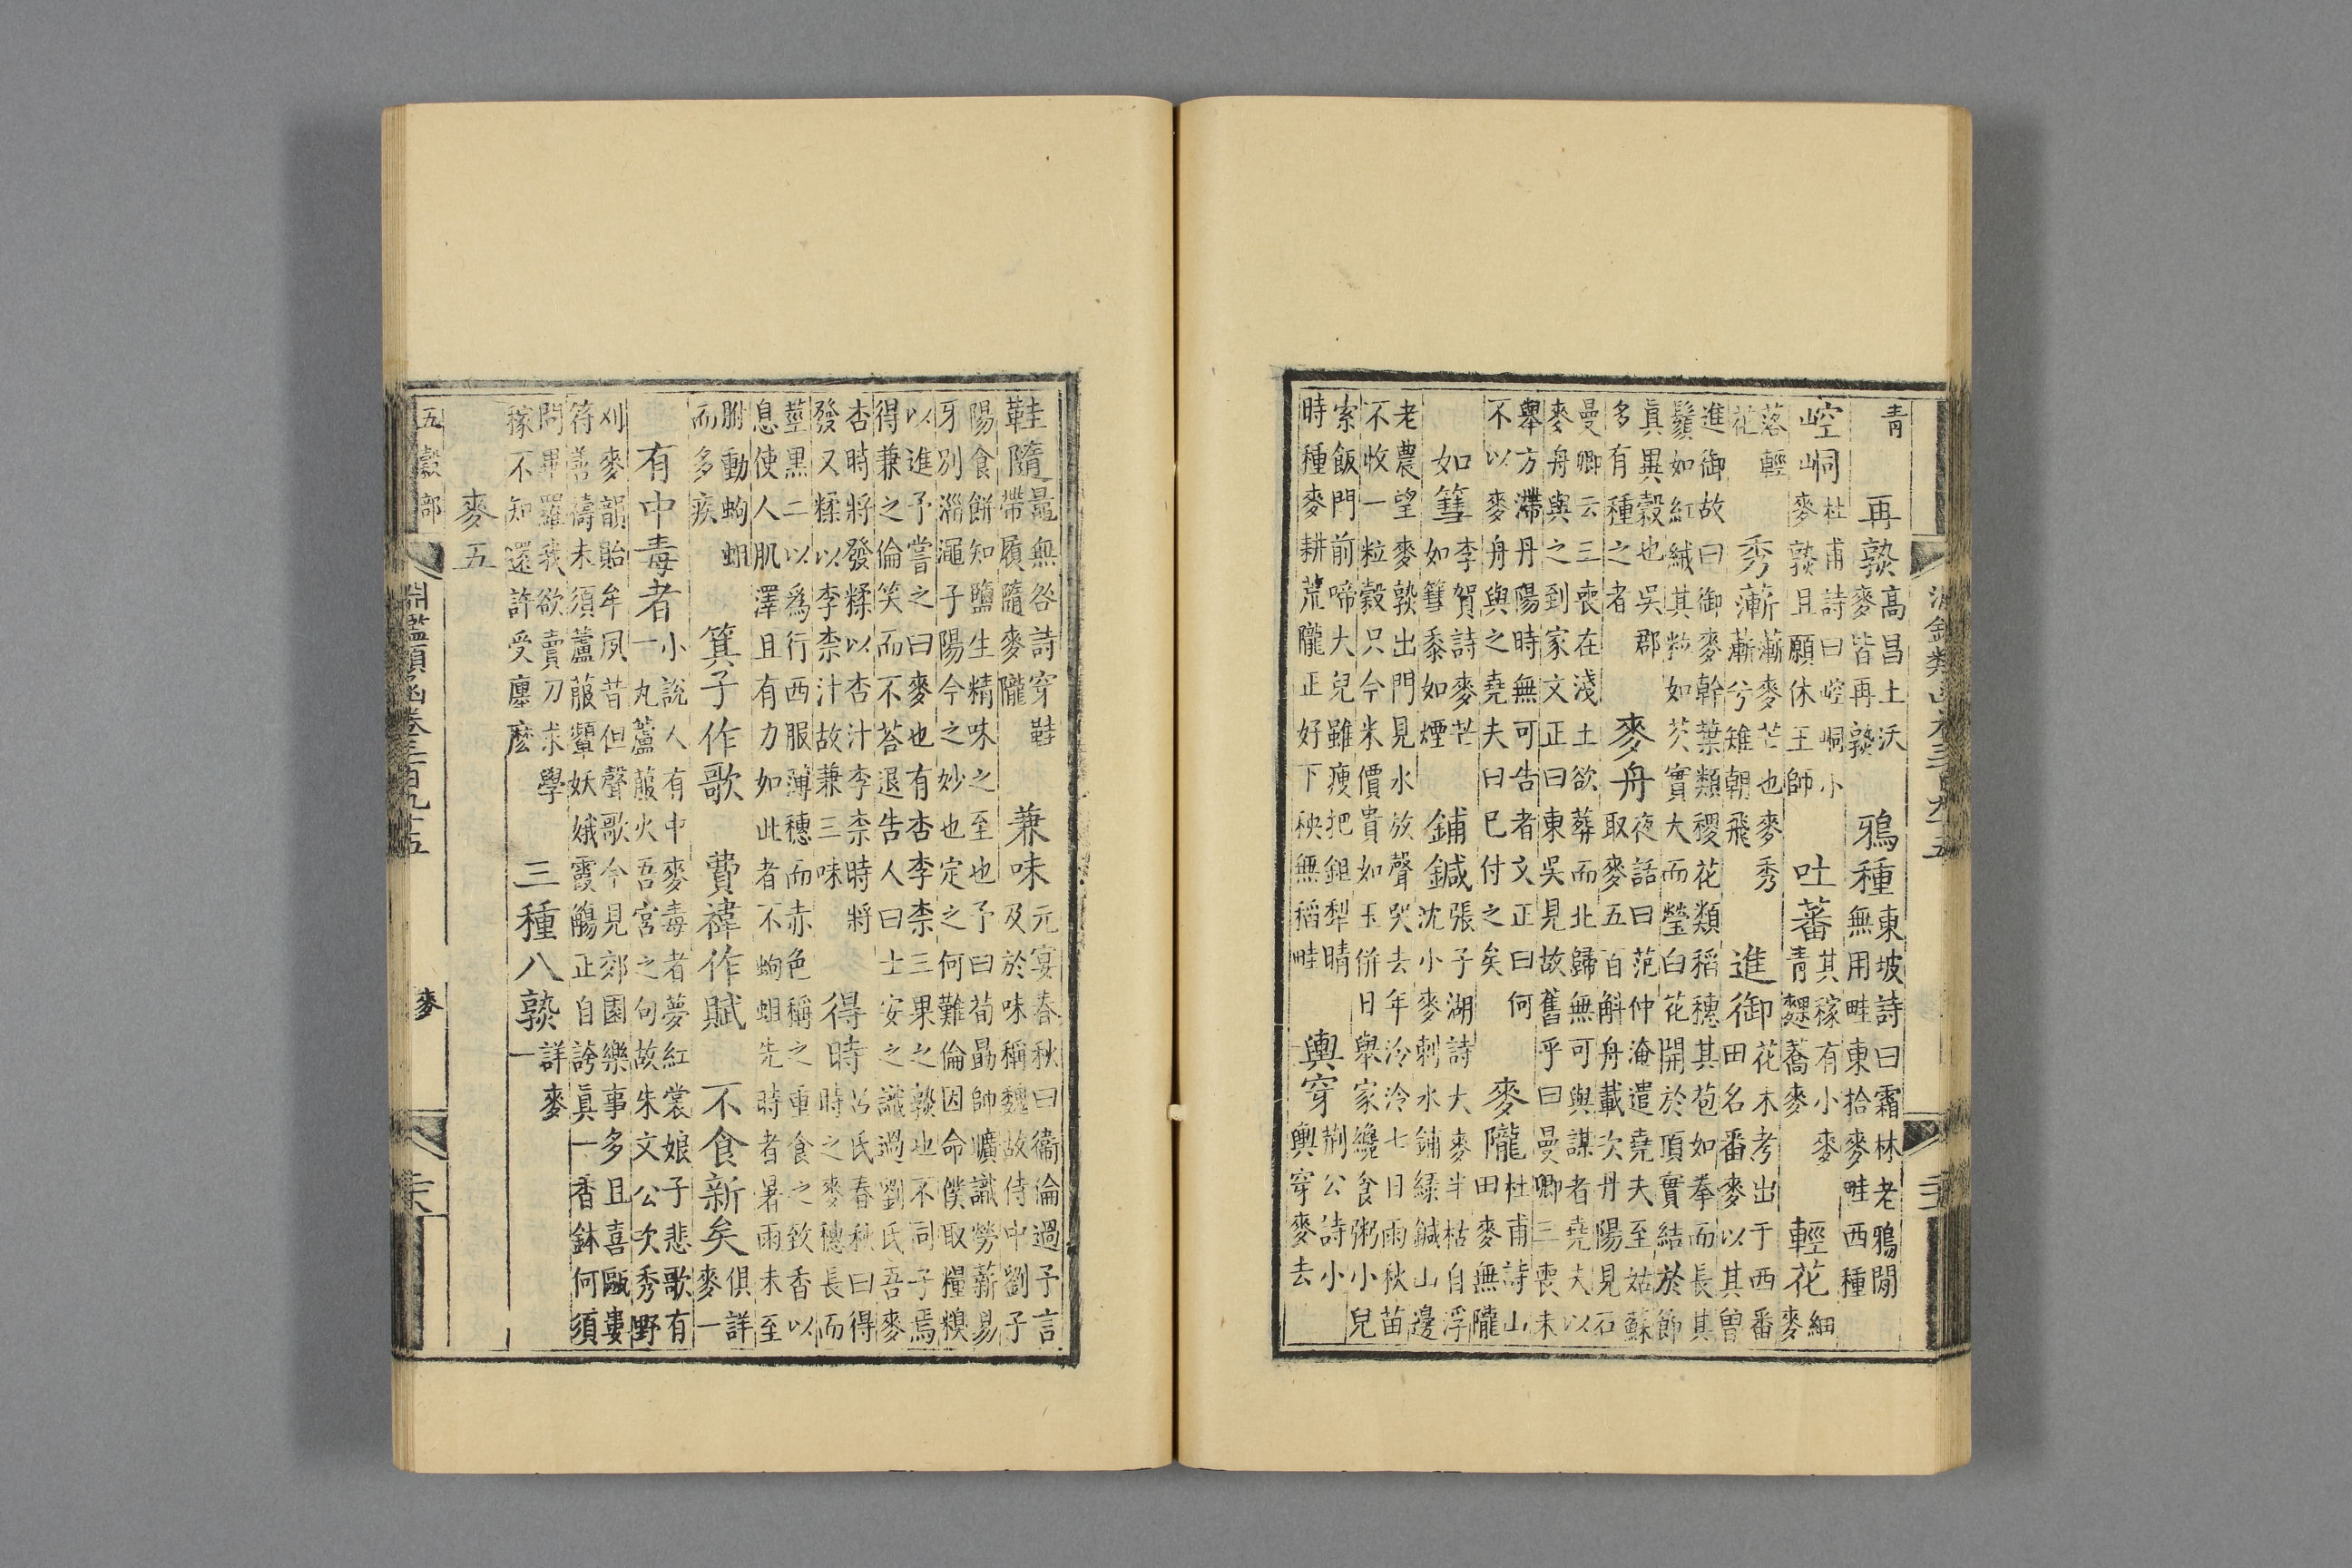 青
再熟 高昌土沃
麥皆再熟
鴉種 東坡詩曰霜林老鴉閒
無用畦東拾麥畦西種
崆峒 杜甫詩曰崆峒小
麥熟且願休王師
吐蕃 其稼有小麥
青稞蕎麥
輕花 細
麥
落輕
花
秀漸 漸麥芒也麥秀
漸兮雉朝飛
進御 花木考出于西番
田名番麥以其曾
進御故曰御麥幹葉類稷花類稻穗其苞如拳而長其
鬚如紅絨其粒如芡實大而瑩白花開於頂實結於節
真異穀也吳郡
多有種之者
麥舟 夜話曰范仲淹遣堯夫至姑蘇
取麥五百斛舟載次丹陽見石
曼卿云三喪在淺土欲葬而北歸無可與謀者堯夫以
麥舟與之到家文正曰東吳見故舊乎曰曼卿三喪未
舉方滯丹陽時無可告者文正曰何
不以麥舟與之堯夫曰已付之矣
麥隴 杜甫詩山
田麥無隴
如篲 李賀詩麥芒
如篲黍如煙
鋪鍼 張子湖詩大麥半枯自浮
沈小麥刺水鋪綠鍼山邊
老農望麥熟出門見水放聲哭去年冷冷七日雨秋苗
不收一粒穀只今米價貴如玉併日舉家纔食粥小兒
索飯門前啼大兒雖瘦把鉏犁晴
時種麥耕荒隴正好下秧無稻畦
輿穿 荆公詩小
輿穿麥去
鞋隨 鼂無咎詩穿鞋
帶履隨麥隴
兼味 元宴春秋曰衞倫過予言
及於味稱魏故侍中劉子
陽食餅知鹽生精味之至也予曰荀勗師曠識勞薪易
牙別淄澠子陽今之妙也定之何難倫因命僕取糧糗
以進予嘗之曰麥也有杏李柰三果之熟也不同子焉
得兼之倫笑而不荅退告人曰士安之識過劉氏吾麥
杏時將發糅以杏汁李柰時將
發又糅以李柰汁故兼三味
得時 呂氏春秋曰得
時之麥穗長而
莖黑二以爲行西服薄穗而赤色稱之重食之致香以
息使人肌澤且有力如此者不蚼蛆先時者暑雨未至
胕動蚼蛆
而多疾
箕子作歌 費禕作賦 不食新矣 俱詳
麥一
有中毒者 小說人有中麥毒者夢紅裳娘子悲歌有
一丸蘆菔火吾宮之句故朱文公次秀野
刈麥韻貽牟夙昔但聲歌今見郊園樂事多且喜甌婁
符善禱未須蘆菔顰妖娥霞觴正自誇真一香鉢何須
問畢羅我欲賣刀求學
稼不知還許受廛麼
三種八熟 詳麥
一
麥五
五穀部 淵鑑類函卷三百九十五 麥